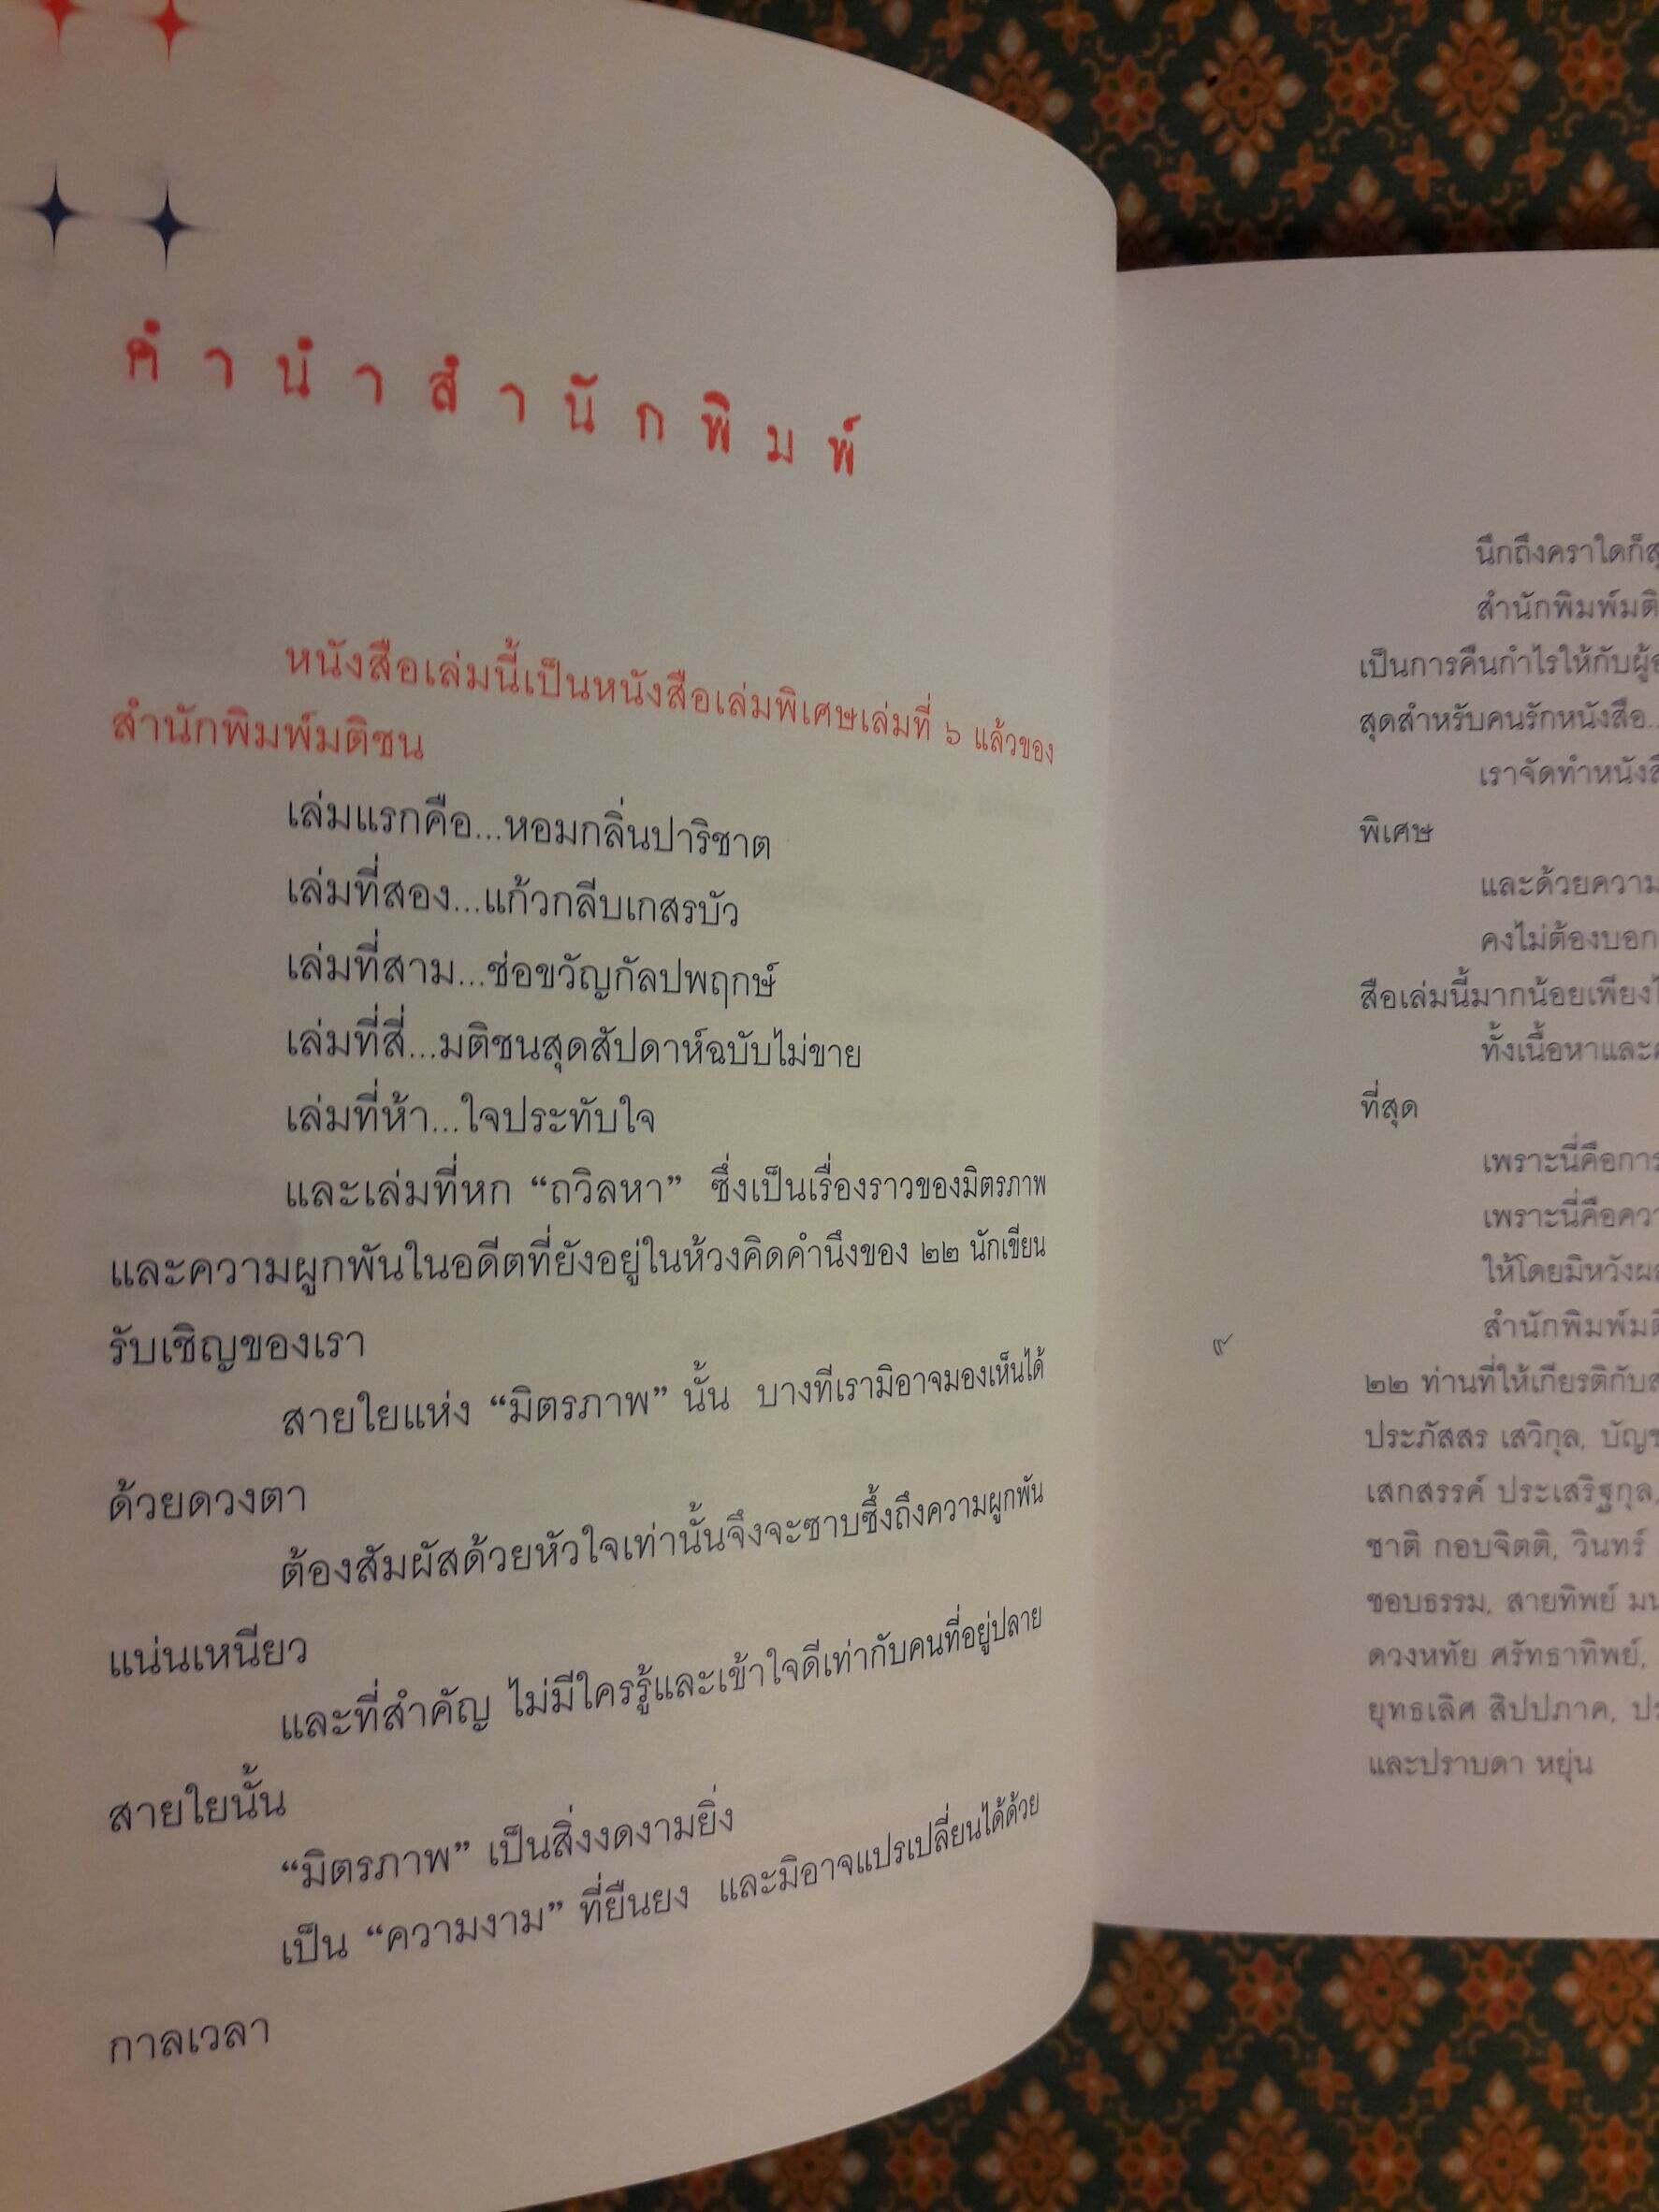 คำนำสำนักพิมพ์
หนังสือเล่มนี้เป็นหนังสือเล่มพิเศษเล่มที่ ๖ แล้วของ
สำนักพิมพ์มติชน
เล่มแรกคือ...หอมกลิ่นปาริชาต
เล่มที่สอง...แก้วกลีบเกสรบัว
เล่มที่สาม...ช่อขวัญกัลปพฤกษ์
เล่มที่สี่...มติชนสุดสัปดาห์ฉบับไม่ขาย
เล่มที่ห้า...ใจประทับใจ
และเล่มที่หก “ถวิลหา” ซึ่งเป็นเรื่องราวของมิตรภาพ
และความผูกพันในอดีตที่ยังอยู่ในห้วงคิดคำนึงของ ๒๒ นักเขียน
รับเชิญของเรา
สายใยแห่ง “มิตรภาพ” นั้น บางทีเรามิอาจมองเห็นได้
ด้วยดวงตา
ต้องสัมผัสด้วยหัวใจเท่านั้นจึงจะซาบซึ้งถึงความผูกพัน
แน่นเหนียว
และที่สำคัญ ไม่มีใครรู้และเข้าใจดีเท่ากับคนที่อยู่ปลาย
สายใยนั้น
“มิตรภาพ” เป็นสิ่งงดงามยิ่ง
เป็น “ความงาม” ที่ยืนยง และมิอาจแปรเปลี่ยนได้ด้วย
กาลเวลา
นึกถึงคราใดก็สุ
สำนักพิมพ์มติ
เป็นการคืนกำไรให้กับผู้
สุดสำหรับคนรักหนังสือ...
เราจัดทำหนังสื
พิเศษ
และด้วยความ
คงไม่ต้องบอก
สือเล่มนี้มากน้อยเพียง
ทั้งเนื้อหาและ
ที่สุด
เพราะนี่คือการ
เพราะนี่คือควา
ให้โดยมิหวังผล
สำนักพิมพ์มติ
๙
๒๒ ท่านที่ให้เกียรติกับส
ประภัสสร เสวิกุล, บัญช
เสกสรรค์ ประเสริฐกุล,
ชาติ กอบจิตติ, วินทร์
ชอบธรรม, สายทิพย์ มน
ดวงหทัย ศรัทธาทิพย์,
ยุทธเลิศ สิปปภาค, ปร
และปราบดา หยุ่น